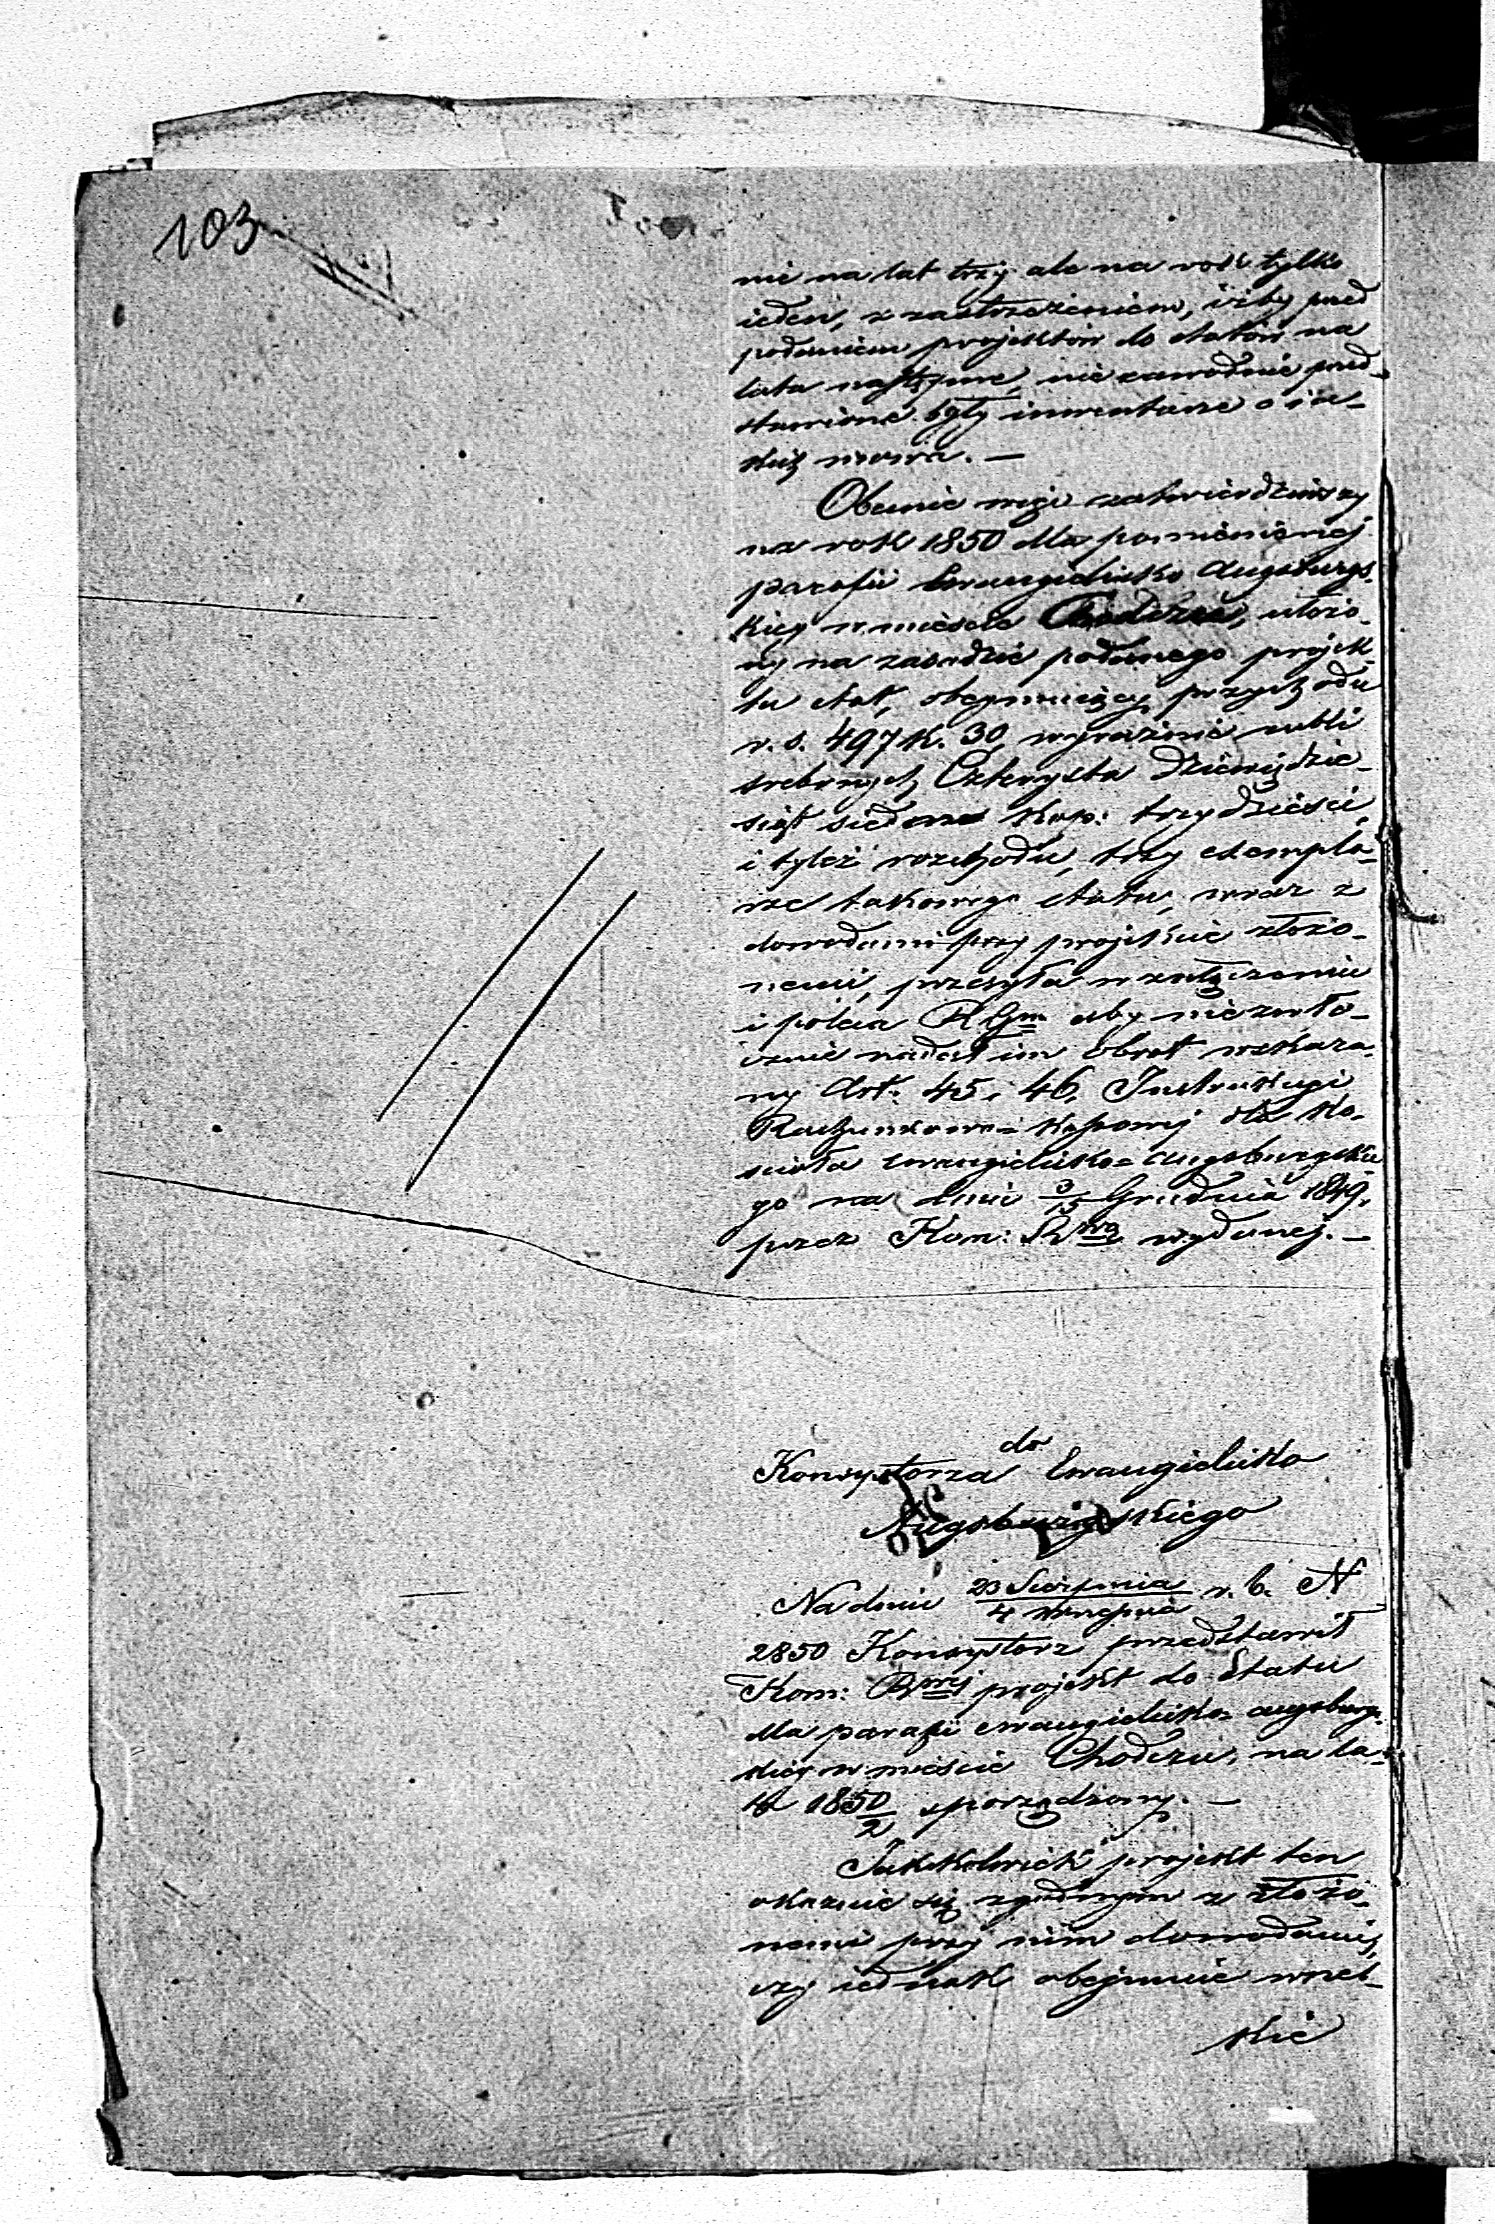 103
nie na lat trzy ale na rok tylko
ieden, z zastrzeżeniem, iżby przed
podaniem projektów do etatów na
lata następne, nie zawodnie przed-
stawione były inwentarze o ia-
kich mowa. —
Obecnie więc zatwierdziwszy
na rok 1850 dla pomienionej
parafii Ewangielicko Augsburgs-
kiey w mieście ułożo-
ny na zasadzie podanego projek-
tu etat, obejmuiący przychodu
r. s. 497 k. 30, wyraźnie rubli
srebrnych Czterysta dziewiędzie-
siąt siedem kop: trzydzieści,
i tyleż rozchodu, trzy exempla-
rze takowego etatu, wraz z
dowodami przy projekcie złożo-
nemi, przesyła w załączeniu
i poleca aby niezwło-
cznie nadał im obrót wskaza-
ny Art. 45 i 46. Instrukcyi
Rachunkowo-Kassowej dla Ko-
ścioła Ewangielicko-Augsburgskie
go na dniu 3/15 Grudnia 1849.
przez Kom: Rwą wydanej. —
do
Konsystorza Ewangielicko
Augsburgskiego
Na dniu 23 Sierpnia/4 Września r. b. N
2850 Konsystorz przedstawił
Kom: Rwej projekt do Etatu
dla parafii ewangielicko-augsburgs-
kiey w mieście Chodczu, na la-
ta 1850/2 sporządzony. —
Jakkolwiek projekt ten
okazuie się zgodnym z złożo-
nemi przy nim dowodami,
czy iednak obejmuie wszel-
kie